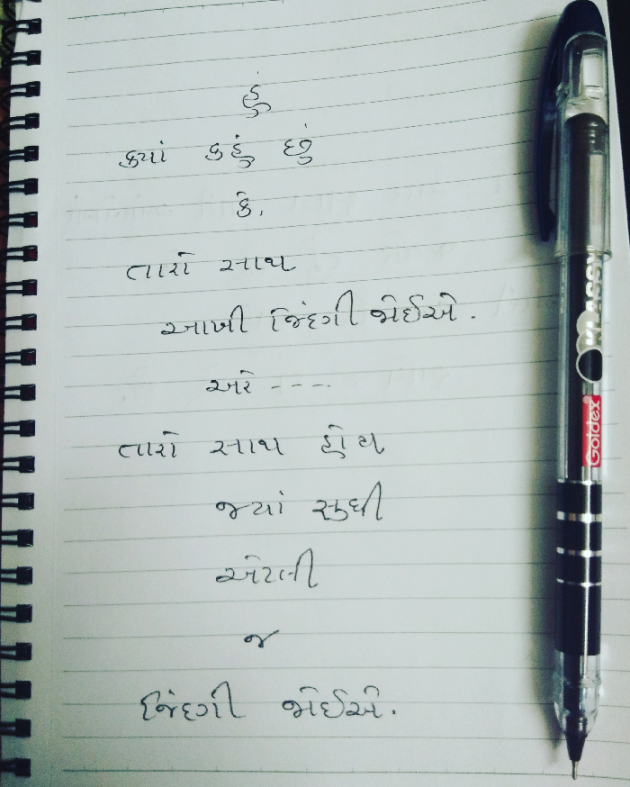 હું
ક્યાં કહું છું
કે,
તારો સાથ
આખી જિંદગી જોઈએ.
અરે ----
તારો સાથ હોય
જ્યાં સુધી
એટલી
જ
જિંદગી જોઈએ.
KLASS
Goldex